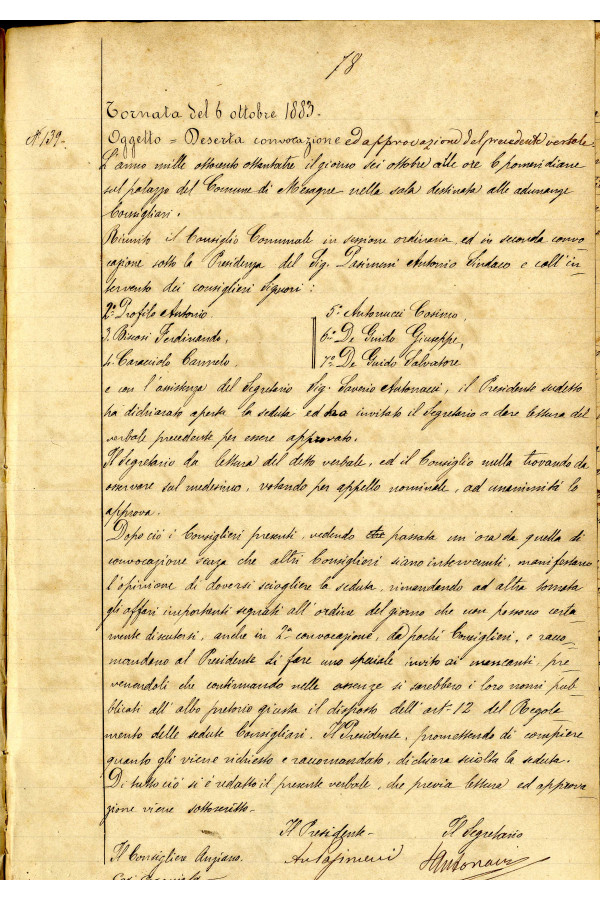 78
Tornata del 6 ottobre 1883.
N° 139.
Oggetto = Deserta convocazione ed approvazione del precedente verbale
L'anno mille ottocento ottantatre il giorno sei ottobre alle ore 6 pomeridiane
sul palazzo del Comune di Mesagne nella sala destinata alle adunanze
Consigliari.
Riunito il Consiglio Comunale in sessione ordinaria ed in seconda convo
cazione sotto la Presidenza del Sig. Pasimeni Antonio Sindaco e coll'in
tervento dei consiglieri Signori:
2° Profilo Antonio
5° Antonucci Cosimo,
3. Ferdinando,
6° De Guido Giuseppe,
4. Caracciolo Carmelo,
7° De Guido Salvatore
e con l'assistenza del Segretario Sig. Saverio Antonucci, il Presidente sudetto
ha dichiarato aperta la seduta ed ha invitato il Segretario a dare lettura del
verbale precedente per essere approvato.
Il Segretario da lettura del detto verbale, ed il Consiglio nulla trovando da
osservare sul medesimo, votando per appello nominale, ad unanimità lo
approva.
Dopo ciò i Consiglieri presenti, vedendo che passata un'ora da quella di
convocazione senza che altri Consiglieri siano intervenuti, manifestano
l'opinione di doversi sciogliere la seduta, rimandando ad altra tornata
gli affari importanti segnati all'ordine del giorno che non possono certa
mente discutersi, anche in 2ª convocazione, da pochi Consiglieri, e racco
mandano al Presidente di fare uno speciale invito ai mancanti, pre
venendoli che continuando nelle assenze si sarebbero i loro nomi pub
blicati all'albo pretorio giusta il disposto dell'art. 12 del Regola
mento delle sedute Consigliari. Il Presidente, promettendo di compiere
quanto gli viene richiesto e raccomandato, dichiara sciolta la seduta.
Di tutto ciò si è redatto il presente verbale, che previa lettura ed approva
zione viene sottoscritto.
Il Presidente
Il Segretario
Il Consigliere Anziano.
Ant. Pasimeni
S. Antonucci